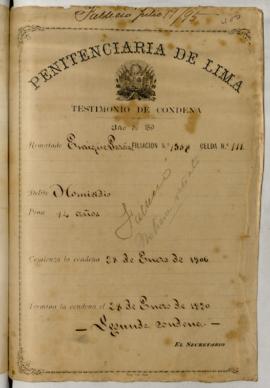 Falleció Julio 1º/95
PENITENCIARIA DE LIMA
TESTIMONIO DE CONDENA
Año de 190
Rematado Enrique Pardo FILIACION N.º 1308 CELDA N.º 111
Delito Homisidio
Falleció
Pena 14 años
Comienza la condena 28 de Enero de 1906
Termina la condena el 28 de Enero de 1920
Segunda condena
EL SECRETARIO